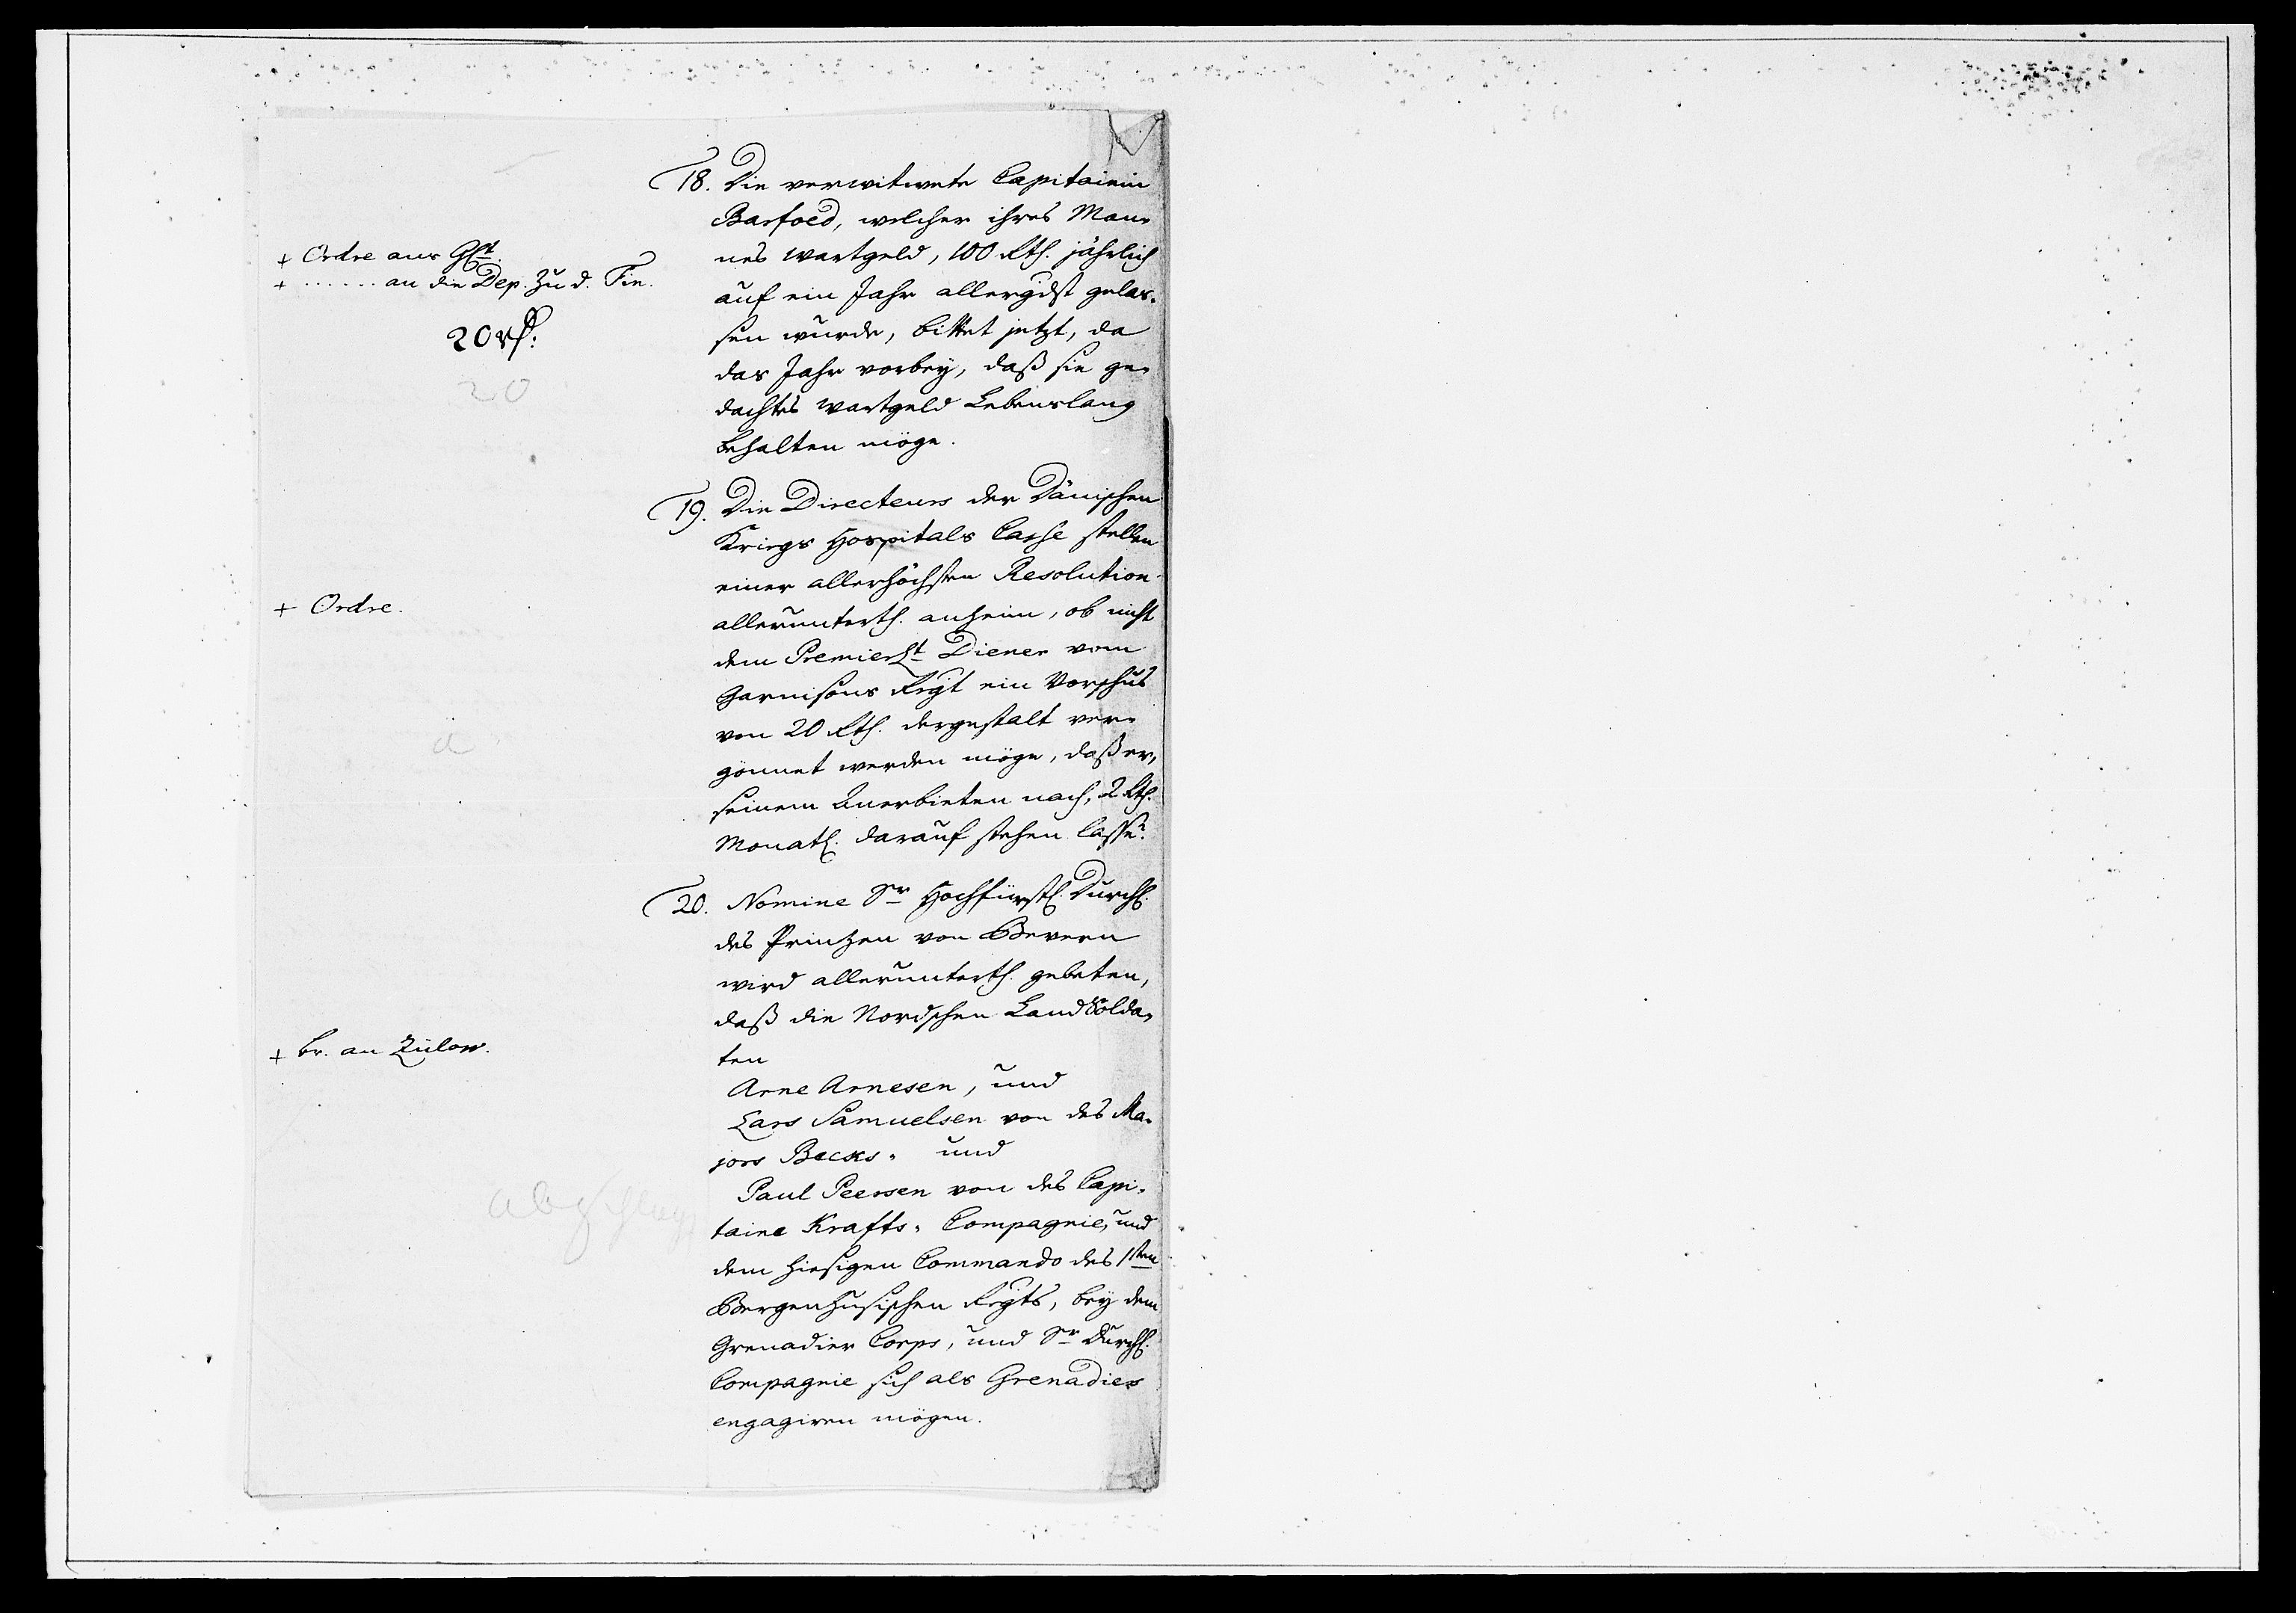 18. Die verwitwete Capitainin
Barfoed, welcher ihres Man-
nes Wartgeld, 100 Rth. jährlich
auf ein Jahr allergdst gelas-
sen wurde, bittet jetzt, da
das Jahr vorbey, daß sie ge-
dachtes Wartgeld Lebenslang
behalten möge.
+ Ordre aus
+ ...... an die Dep. zu d. Fin.
20 rh:
20
19. Die Directeurs der Dänischen
Kriegs Hospitals Casse stellen
einer allerhöchsten Resolution
allerunterth. anheim, ob nicht
dem PremierLt Diener vom
Garnisons Regt ein Vorschus
von 20 Rth. dergestalt ver-
gönnet werden möge, daß er,
seinem Anerbieten nach, 2 Rth.
Monatl. darauf stehen lasse?
+ Ordre.
a
20. Nomine Sr Hochfürstl. Durchl.
des Printzen von Bevern
wird allerunterth. gebeten,
daß die Nordschen LandSolda-
ten
Arne Arnesen, und
Lars Samuelsen von des Ma-
jors Becks- und
Paul Peersen von des Capi-
taine Kraffts- Compagnie, und
dem hiesigen Commando des 1sten
Bergenhusischen Regts, bey dem
Grenadier Corps, und Sr Durchl.
Compagnie sich als Grenadier
engagiren mögen.
+ br. an Zülow.
abgeschlagen